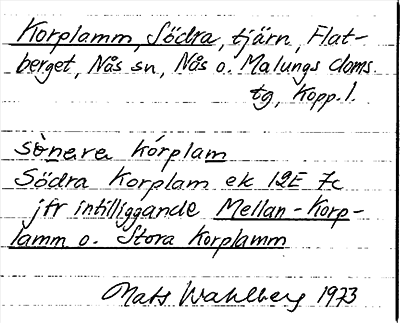 Korplamm, Södra, tjärn, Flat-
berget, Nås sn, Nås o. Malungs doms.
tg, Kopp. l.
sònera kórplam
Södra Korplam ek 12E 7c
jfr intilliggande Mellan-Korp-
lamm o. Stora Korplamm
Mats Wahlberg 1973